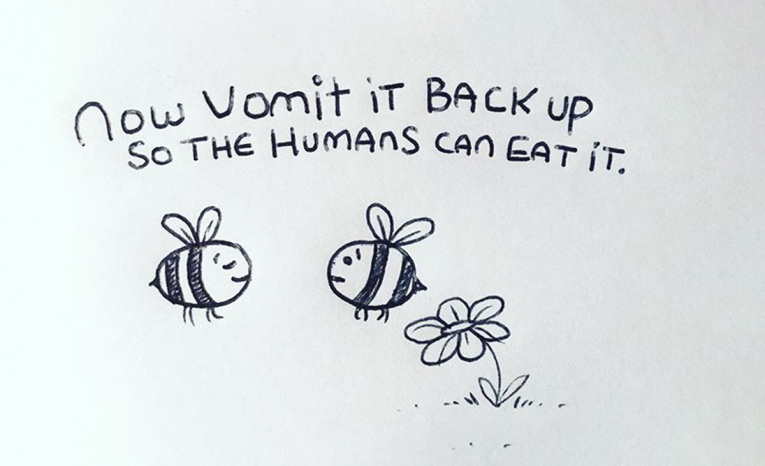 Now Vomit it BACK up
SO THE HUMANS CAN EAT iT.